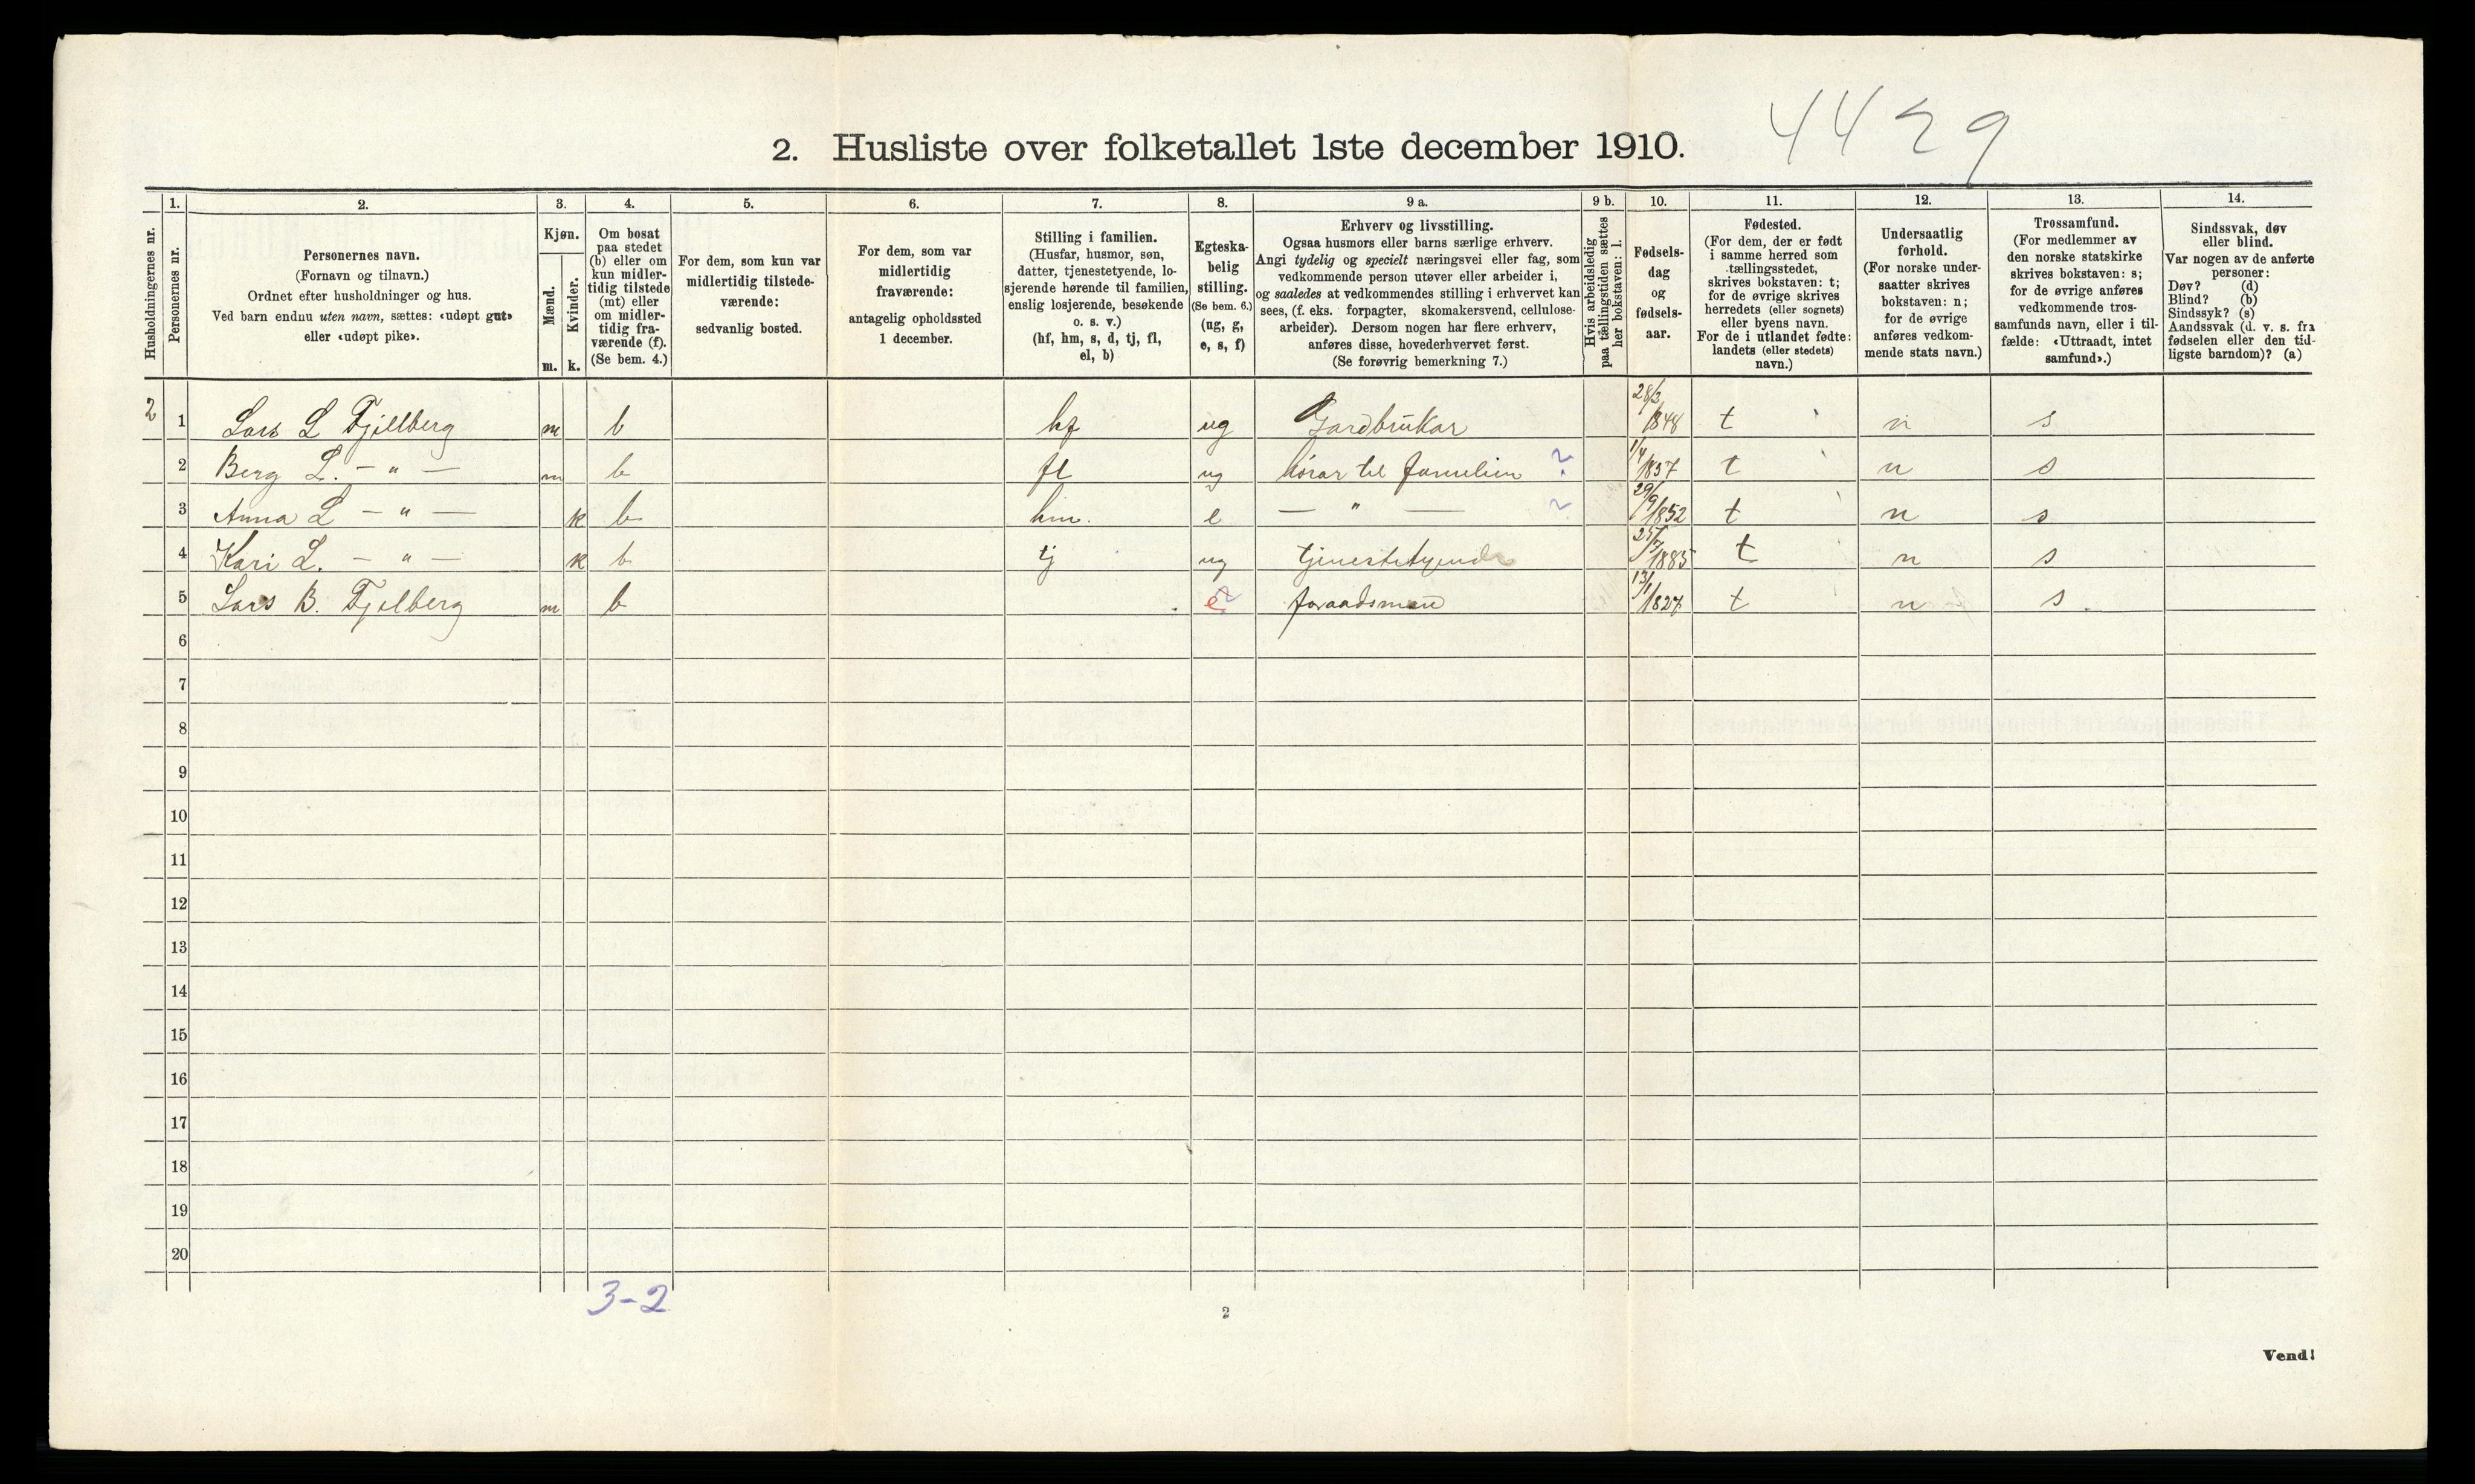 4429
2. Husliste over folketallet 1ste december 1910.
Husholdningernes nr.
1.
Personernes nr.
2.
Personernes navn.
(Fornavn og tilnavn.)
Ordnet efter husholdninger og hus.
Ved barn endnu uten navn, sættes: «udøpt gut»
eller «udøpt pike».
3.
Kjøn.
Mænd.
m.
Kvinder.
k.
4.
Om bosat
paa stedet
(b) eller om
kun midler-
tidig tilstede
(mt) eller
om midler-
tidig fra-
værende (f).
(Se bem. 4.)
5.
For dem, som kun var
midlertidig tilstede-
værende:
sedvanlig bosted.
6.
For dem, som var
midlertidig
fraværende:
antagelig opholdssted
1 december.
7.
Stilling i familien.
(Husfar, husmor, søn,
datter, tjenestetyende, lo-
sjerende hørende til familien,
enslig losjerende, besøkende
o. s. v.)
(hf, hm, s, d, tj, fl,
el, b)
8.
Egteska-
belig
stilling.
(Se bem. 6.)
(ug, g,
e, s, f)
9 a.
Erhverv og livsstilling.
Ogsaa husmors eller barns særlige erhverv.
Angi tydelig og specielt næringsvei eller fag, som
vedkommende person utøver eller arbeider i,
og saaledes at vedkommendes stilling i erhvervet kan
sees, (f. eks. forpagter, skomakersvend, cellulose-
arbeider). Dersom nogen har flere erhverv,
anføres disse, hovederhvervet først.
(Se forøvrig bemerkning 7.)
9 b.
Hvis arbeidsledig
paa tællingstiden sættes
her bokstaven: l.
10.
Fødsels-
dag
og
fødsels-
aar.
11.
Fødested.
(For dem, der er født
i samme herred som
tællingsstedet,
skrives bokstaven: t;
for de øvrige skrives
herredets (eller sognets)
eller byens navn.
For de i utlandet fødte:
landets (eller stedets)
navn.)
12.
Undersaatlig
forhold.
(For norske under-
saatter skrives
bokstaven: n;
for de øvrige
anføres vedkom-
mende stats navn.)
13.
Trossamfund.
(For medlemmer av
den norske statskirke
skrives bokstaven: s;
for de øvrige anføres
vedkommende tros-
samfunds navn, eller i til-
fælde: «Uttraadt, intet
samfund».)
14.
Sindssvak, døv
eller blind.
Var nogen av de anførte
personer:
Døv? (d)
Blind? (b)
Sindssyk? (s)
Aandssvak (d. v. s. fra
fødselen eller den tid-
ligste barndom)? (a)
2 1 Lars L Fjellberg m b hf ug Gardbrukar 28/3 1848 t n s
2 Berg L. — " — m b fl ug hørar til familien ? 1/4 1857 t n s
3 Anna L — " — k b hm. e — " — ? 29/9 1852 t n s
4 Kari L. — " — k b tj ug tjenestetyende 25/7 1885 t n s
5 Lars B. Fjelberg m b e foraadsman 13/1 1827 t n s
6
7
8
9
10
11
12
13
14
15
16
17
18
19
20
3-2
2
Vend!